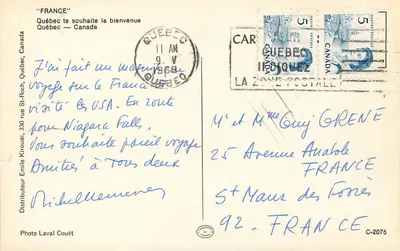 "FRANCE"
Québec te souhaite la bienvenue
Québec — Canada
Distributeur Emile Kirouac, 339 rue St-Roch, Québec, Canada
QUÉBEC
11 AM
9. V
1968
QUÉBEC
CAR
5
CANADA
5
CANADA
QUEBEC
INDIQUEZ
LA ZONE POSTALE
J'ai fait un
voyage sur le France
visité les USA. En route
pour Niagara Falls.
Vous souhaite pareil voyage
Amitiés à Tous deux
Mr et Mme Guy GRENE
25 Avenue Anatole
FRANCE
St Maur des Fossés
92. FRANCE
Photo Laval Couët
C-2075